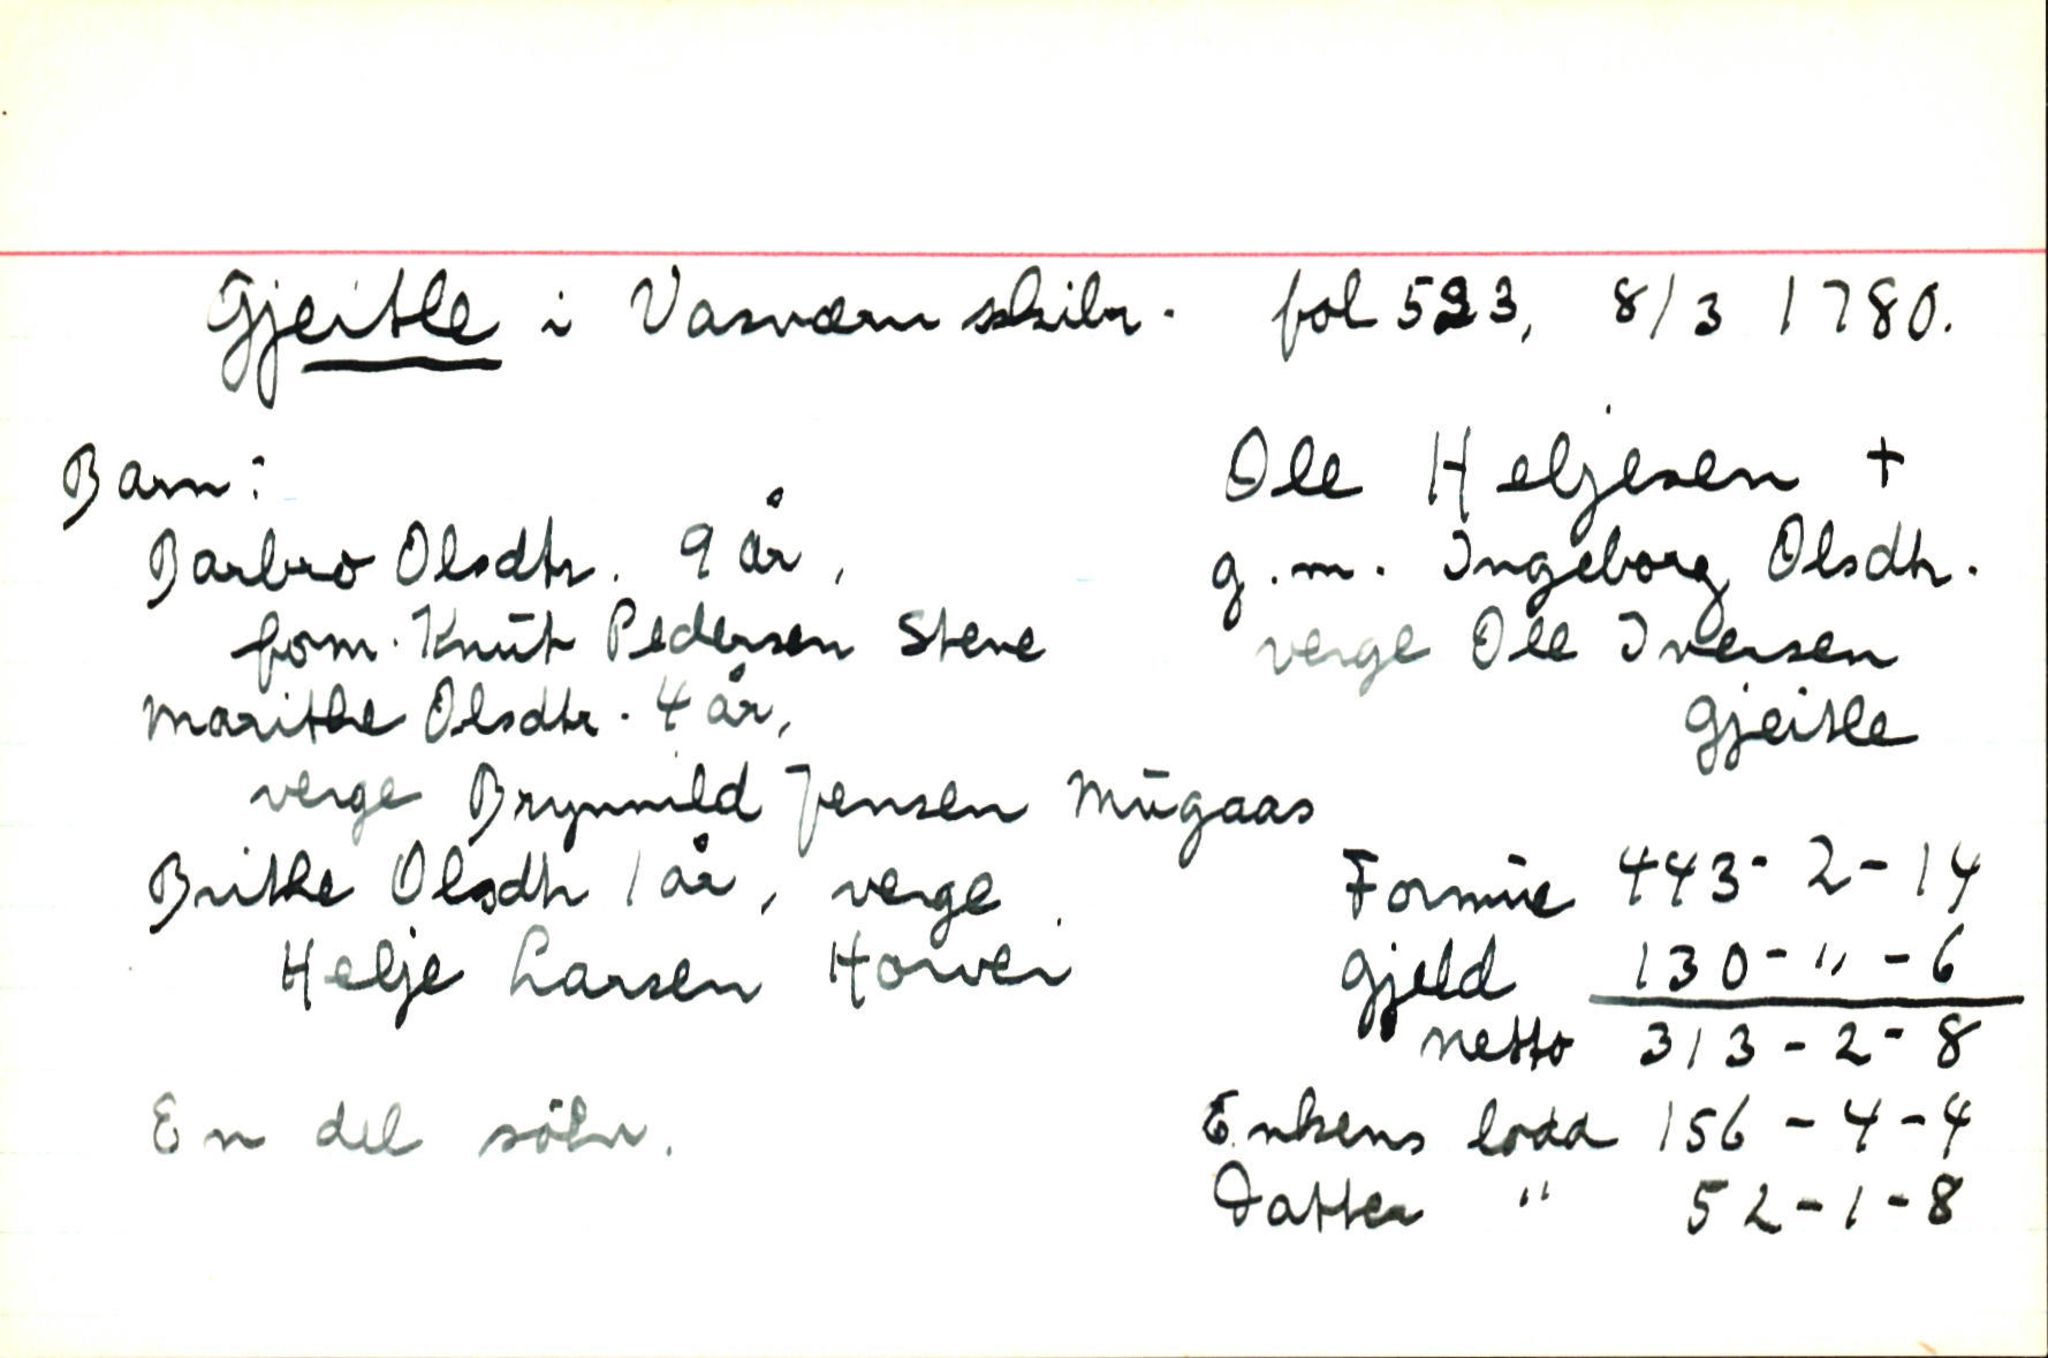 Gjeitle i Vasværn skibr. fol 523, 8/3 1780.
Ole Heljesen +
g.m. Ingeborg Olsdtr.
verge Ole Iversen
Gjeitle
Barn:
Barbro Olsdtr. 9 år,
form. Knut Pedersen Stene
Marithe Olsdtr. 4 år,
verge Brynnild Jensen Mugaas
Brithe Olsdtr 1 år, verge
Helje Larsen Horvei
En del sölv.
Formue 443-2-14
Gjeld 130-"-6
netto 313-2-8
Enkens lodd 156-4-4
Datter " 52-1-8